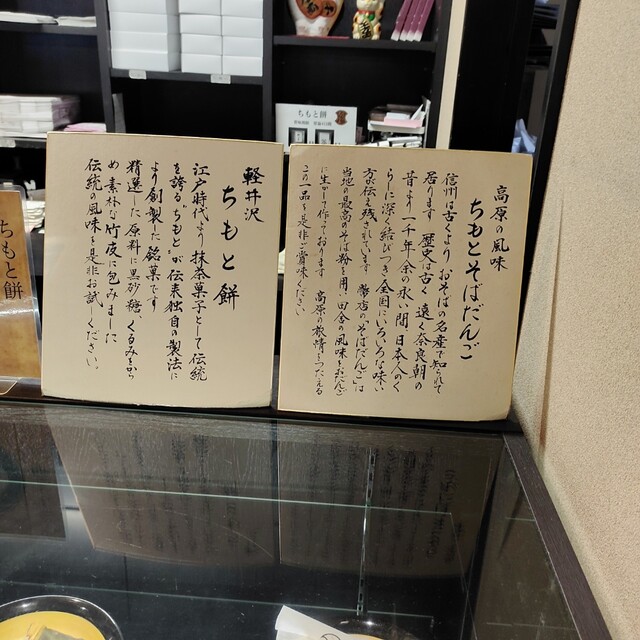 高原の風味
ちもとそばだんご
信州は古くより おそばの名産で知られて
居ります 歴史は古く 遠く奈良朝の
昔より 一千年余の永い間 日本人のく
らしに深く結びつき 全国にいろいろな味い
方が伝え残されています 当店の そばだんごは
当地の最高のそば粉を用い 田舎の風味をおだんご
に生かして作っております 高原の旅情をつたえる
この一品を是非ご賞味ください
軽井沢
ちもと餅
江戸時代より 抹茶菓子として伝統
を誇る"ちもと"が 伝来独自の製法に
より創製した銘菓です
精選した原料に黒砂糖、くるみをから
め 素朴な竹皮に包みました
伝統の風味を是非お試しください。
ちもと餅
ちもと餅